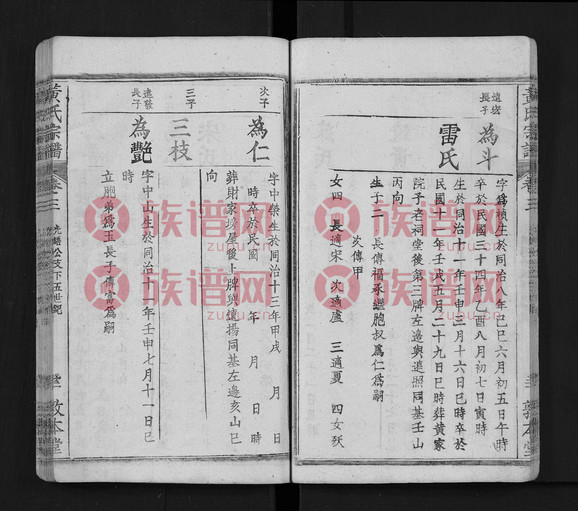 遠宏
長子
為斗
字為楨生於同治八年己巳六月初五日午時
卒於民國三十四年乙酉八月初七日寅時
雷氏
生於同治十一年壬申三月十六日巳時卒於
民國十一年壬戌五月二十九日巳時葬黄家
院子老祠堂後第三牌左邊與遠照同基壬山
丙向
生子二
長傳福承繼胞叔為仁為嗣
次傳甲
女四
長適宋
次適盧
三適夏
四女殀
次子
為仁
字中榮生於同治十三年甲戌 月 日
時卒於民國 年 月 日 時
葬財家坟屋後上牌與遠揚同基左邊亥山巳
向
三子
三枝
遠發
長子
為艷
字中山生於同治十一年壬申七月十一日巳
時
立胞弟為玉長子傳富為嗣
黄氏宗譜
卷三
敦本堂
黄氏宗譜
卷三
敦本堂
族谱网
zupu.cn